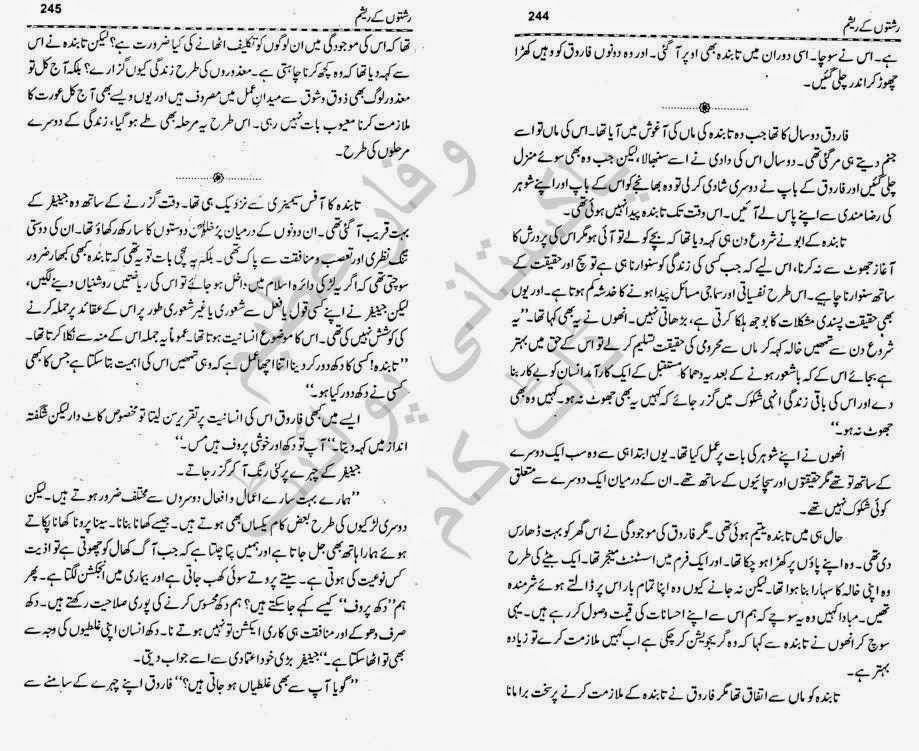 رشتوں کے ریشم
244
ہے۔ اس نے سوچا۔ اسی دوران میں تابندہ بھی اوپر آ گئی۔ اور وہ دونوں فاروق کو وہیں کھڑا
چھوڑ کر اندر چلی گئیں۔
فاروق دو سال کا تھا جب وہ تابندہ کی ماں کی آغوش میں آیا تھا۔ اس کی ماں تو اسے
جنم دیتے ہی مر گئی تھی۔ دو سال اس کی دادی نے اسے سنبھالا، لیکن جب وہ بھی سوئے منزل
چلی گئیں اور فاروق کے باپ نے دوسری شادی کر لی تو وہ بھانجے کو اس کے باپ اور اپنے شوہر
کی رضا مندی سے اپنے پاس لے آئیں۔ اس وقت تک تابندہ پیدا نہیں ہوئی تھی۔
تابندہ کے ابو نے شروع دن ہی کہہ دیا تھا کہ بچے کو لے تو آئی ہو مگر اس کی پرورش کا
آغاز جھوٹ سے نہ کرنا، اس لیے کہ جب کسی کی زندگی کو سنوارنا ہی ہے تو سچ اور حقیقت کے
ساتھ سنوارنا چاہیے۔ اس طرح نفسیاتی اور سماجی مسائل پیدا ہونے کا خدشہ کم ہوتا ہے۔ اور یوں
بھی حقیقت پسندی مشکلات کا بوجھ ہلکا کرتی ہے، بڑھاتی نہیں۔ انھوں نے یہ بھی کہا تھا۔ ’’یہ
شروع دن سے تمھیں خالہ کہہ کر ماں سے محرومی کی حقیقت تسلیم کر لے تو اس کے حق میں بہتر
ہے بجائے اس کے کہ باشعور ہونے کے بعد یہ دھماکا مستقبل کے ایک کارآمد انسان کو بے کار بنا
دے اور اس کی باقی زندگی انہی شکوک میں گزر جائے کہ کہیں یہ بھی جھوٹ نہ ہو۔ کہیں وہ بھی
جھوٹ نہ ہو۔‘‘
انھوں نے اپنے شوہر کی بات پر عمل کیا تھا۔ یوں ابتدا ہی سے وہ سب ایک دوسرے
کے ساتھ تو تھے مگر حقیقتوں اور سچائیوں کے ساتھ تھے۔ ان کے درمیان ایک دوسرے سے متعلق
کوئی شکوک نہیں تھے۔
حال ہی میں تابندہ یتیم ہوئی تھی۔ مگر فاروق کی موجودگی نے اس گھر کو بہت ڈھارس
دی تھی۔ وہ اپنے پاؤں پر کھڑا ہو چکا تھا۔ اور ایک فرم میں اسسٹنٹ منیجر تھا۔ ایک بیٹے کی طرح
وہ اپنی خالہ کا سہارا بنا ہوا تھا۔ لیکن نہ جانے کیوں وہ اپنا تمام بار اس پر ڈالتے ہوئے شرمندہ
تھیں۔ مبادا کہیں وہ یہ سوچے کہ ہم اس سے اپنے احسانات کی قیمت وصول کر رہے ہیں۔ یہی
سوچ کر انھوں نے تابندہ سے کہا کہ وہ گریجویشن کر چکی ہے اب کہیں ملازمت کرے تو زیادہ
بہتر ہے۔
تابندہ کو ماں سے اتفاق تھا مگر فاروق نے تابندہ کے ملازمت کرنے پر سخت برا مانا
رشتوں کے ریشم
245
تھا کہ اس کی موجودگی میں ان لوگوں کو تکلیف اٹھانے کی کیا ضرورت ہے؟ لیکن تابندہ نے اس
سے کہہ دیا تھا کہ وہ کچھ کرنا چاہتی ہے۔ معذوروں کی طرح زندگی کیوں گزارے؟ بلکہ آج کل تو
معذور لوگ بھی ذوق و شوق سے میدانِ عمل میں مصروف ہیں اور یوں ویسے بھی آج کل عورت کا
ملازمت کرنا معیوب بات نہیں رہی۔ اس طرح یہ مرحلہ بھی طے ہو گیا، زندگی کے دوسرے
مرحلوں کی طرح۔
تابندہ کا آفس سیمیٹری سے نزدیک ہی تھا۔ وقت گزرنے کے ساتھ وہ جینیفر کے
بہت قریب آ گئی تھی۔ ان دونوں کے درمیان پر خلوص دوستوں کا سا رکھ رکھاؤ تھا۔ ان کی دوستی
تنگ نظری اور تعصب و منافقت سے پاک تھی۔ بلکہ یہ سچی بات تو یہ تھی کہ تابندہ کبھی کبھار ضرور
سوچتی تھی کہ اگر یہ لڑکی دائرہ اسلام میں داخل ہو جائے تو اس کی ریاضتیں روشنیاں دینے لگیں،
لیکن جینیفر نے اپنے کسی قول یا فعل سے شعوری یا غیر شعوری طور پر اس کے عقائد پر حملہ کرنے
کی کوشش نہیں کی تھی۔ اس کا موضوع انسانیت ہوتا تھا۔ عموماً یہ جملہ اس کے منہ سے نکلا کرتا تھا۔
’’تابندہ! کسی کا دکھ دور کر دینا اتنا اچھا عمل ہے کہ وہی تمھیں اس کی اہمیت بتا سکتا ہے جس کا کبھی
کسی نے دکھ دور کیا ہو۔‘‘
ایسے میں کبھی فاروق اس کی انسانیت پر تقریر سن لیتا تو مخصوص کاٹ دار لیکن شگفتہ
انداز میں کہہ دیتا۔ ’’آپ تو دکھ اور خوشی پروف ہیں مس۔‘‘
جینیفر کے چہرے پر کئی رنگ آ کر گزر جاتے۔
’’ہمارے بہت سارے اعمال و افعال دوسروں سے مختلف ضرور ہوتے ہیں۔ لیکن
دوسری لڑکیوں کی طرح بعض کام یکساں بھی ہوتے ہیں۔ جیسے کھانا بنانا۔ سینا پرونا کھانا پکاتے
ہوئے ہمارا ہاتھ بھی جل جاتا ہے اور ہمیں پتا چلتا ہے کہ جب آگ کھال کو چھوتی ہے تو اذیت
کس نوعیت کی ہوتی ہے۔ سیتے پروتے سوئی کھب جاتی ہے اور بیماری میں انجکشن لگتا ہے۔ پھر
ہم ’’دکھ پروف‘‘ کیسے کہے جا سکتے ہیں؟ ہم دکھ محسوس کرنے کی پوری صلاحیت رکھتے ہیں۔ دکھ
صرف دھوکے اور منافقت ہی کا ری ایکشن تو نہیں ہوتے نا۔ دکھ انسان اپنی غلطیوں کی وجہ سے
بھی تو اٹھا سکتا ہے۔‘‘ جینیفر بڑی خود اعتمادی سے اسے جواب دیتی۔
’’گویا آپ سے بھی غلطیاں ہو جاتی ہیں؟‘‘ فاروق اپنے چہرے کے سامنے سے
وقار عظیم
پاکستانی پوائنٹ
ڈاٹ کام